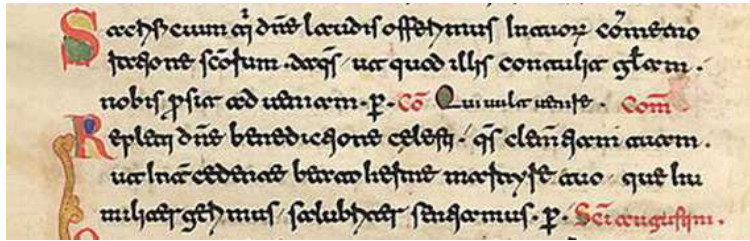 Sacrificium q̄ dn̄e laudis offerimus In tuorum com̄emo
ratione sc̄orum · da q̄s ut quod illis contulit gl̄am ·
nobis ꝓsit ad ueniam · p̄ · Cō Qui uult uenire · Com̄
Repleti dn̄e benedictione celesti · q̄s clem̄tiam tuam ·
ut Int̄cedente beato herme martyre tuo · que hu
militer gerimus salubriter sentiamus · p̄ · Sc̄i augustini ·